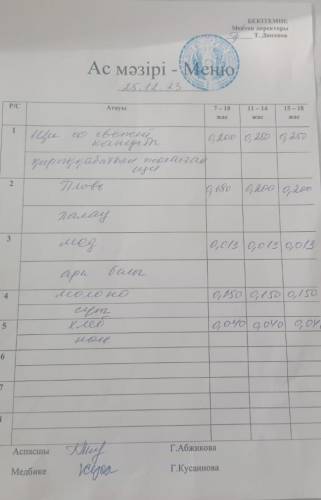 БЕКІТЕМІН:
Мектеп директоры
Т. Даканова
Ас мәзірі - Меню
25.12.23
Р/С Атауы 7 – 10 жас 11 – 14 жас 15 – 18 жас
1 Щи со свежей 0,200 0,250 0,250
капуст
қырыққабаттан жасалған
щи
2 Плов 0,180 0,200 0,200
палау
3 мёд 0,013 0,013 0,013
ара балы
4 молоко 0,150 0,150 0,150
сүт
5 хлеб 0,040 0,040 0,04
нан
6
7
Аспасшы Г.Абжикова
Медбике Г.Кусаинова